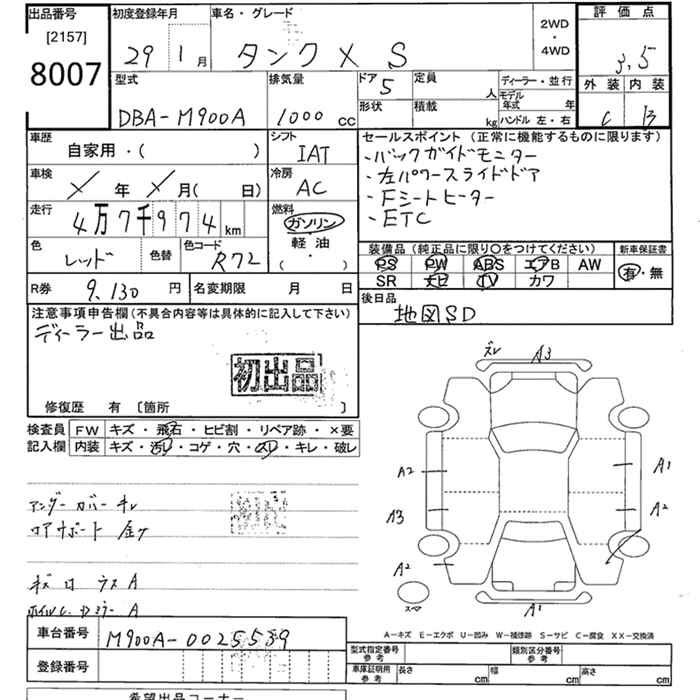 出品番号
[2157]
8007
初度登録年月
29 1月
車名・グレード
タンク X S
2WD
・
4WD
評価点
3.5
外装 内装
C B
型式
DBA-M900A
排気量
1000 cc
ドア 5
形状
定員 人
積載 kg
ディーラー・並行
モデル年式 年
ハンドル 左・右
車歴
自家用・( )
シフト
IAT
車検
年 月( 日)
冷房
AC
走行
4万7千974km
燃料
ガソリン
軽油
( ・ )
色
レッド
色替
色コード
R72
R券 9,130円
名変期限 月 日
セールスポイント(正常に機能するものに限ります)
・バックガイドモニター
・左パワースライドドア
・Fシートヒーター
・ETC
装備品(純正品に限り○をつけてください)
新車保証書
PS PW ABS エアB AW
SR ナビ TV カワ
有・無
後日品
地図SD
注意事項申告欄(不具合内容等は具体的に記入して下さい)
ディーラー出品
初出品
修復歴 有 [箇所 ]
検査員記入欄
FW キズ・飛石・ヒビ割・リペア跡・×要
内装 キズ・汚レ・コゲ・穴・スレ・キレ・破レ
アンダーカバーキレ
コアサポート
キズ
A
A
ズレ
A3
A2
A1
A3
A2
A2
A1
スペア
A-キズ E-エクボ U-凹み W-補修跡 S-サビ C-腐食 XX-交換済
車台番号
M900A-0025539
登録番号
型式指定番号
参考
類別区分番号
参考
車庫証明用
参考
長さ cm
幅 cm
高さ cm
希望出品コーナー